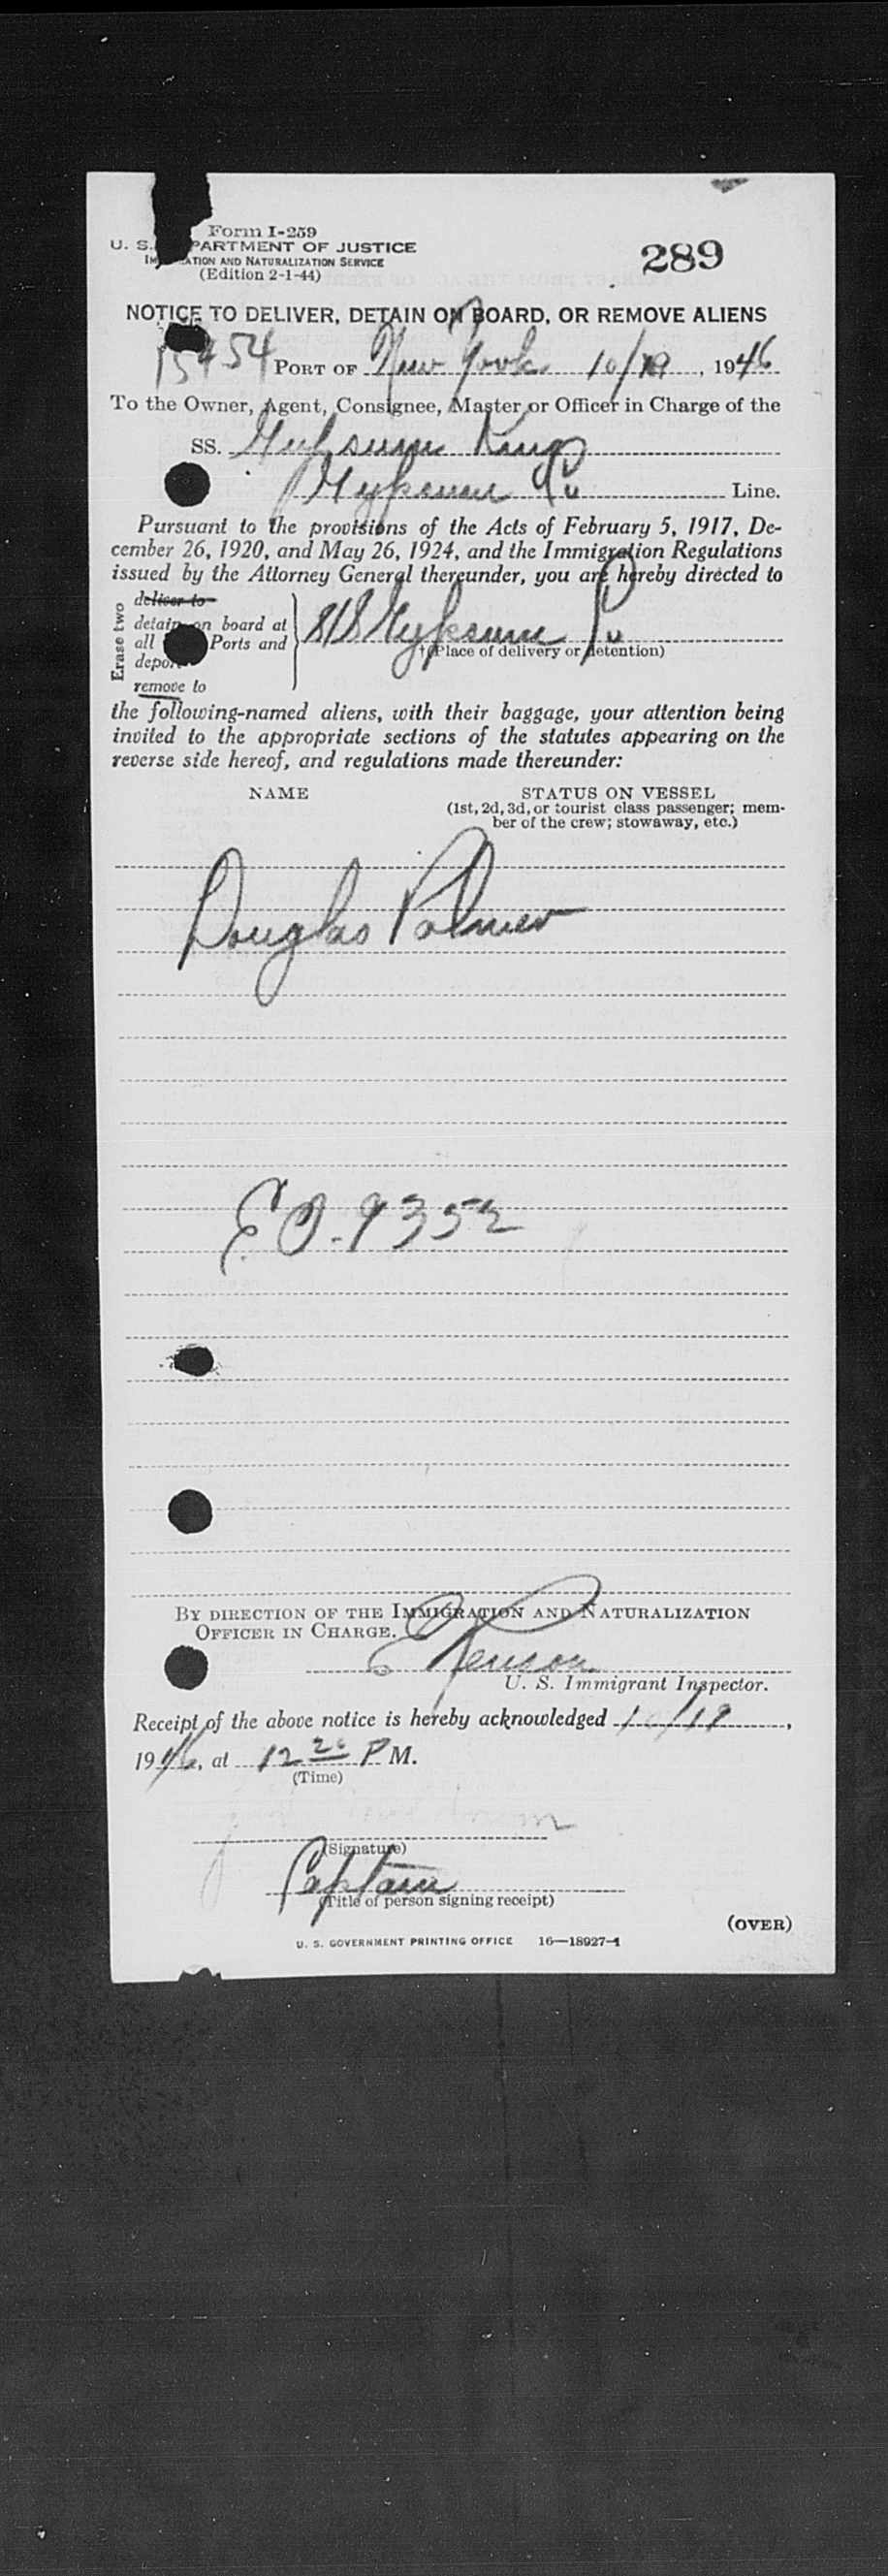 Form I-259
U. S. PARTMENT OF JUSTICE
ATION AND NATURALIZATION SERVICE
(Edition 2-1-44)
289
NOTICE TO DELIVER, DETAIN ON BOARD, OR REMOVE ALIENS
PORT OF New York 10/19, 1946
To the Owner, Agent, Consignee, Master or Officer in Charge of the
SS. Gypsum King
Gypsum Co Line.
Pursuant to the provisions of the Acts of February 5, 1917, De-
cember 26, 1920, and May 26, 1924, and the Immigration Regulations
issued by the Attorney General thereunder, you are hereby directed to
Erase two
deliver to
detain on board at
all Ports and
depor
remove to
Gypsum
†(Place of delivery or detention)
the following-named aliens, with their baggage, your attention being
invited to the appropriate sections of the statutes appearing on the
reverse side hereof, and regulations made thereunder:
NAME STATUS ON VESSEL
(1st, 2d, 3d, or tourist class passenger; mem-
ber of the crew; stowaway, etc.)
Douglas Palmer
E.O. 9352
BY DIRECTION OF THE IMMIGRATION AND NATURALIZATION
OFFICER IN CHARGE.
U. S. Immigrant Inspector.
Receipt of the above notice is hereby acknowledged 10/19,
1946, at 12 20 P M.
(Time)
(Signature)
Captain
(Title of person signing receipt)
(OVER)
U. S. GOVERNMENT PRINTING OFFICE 16—18927-1